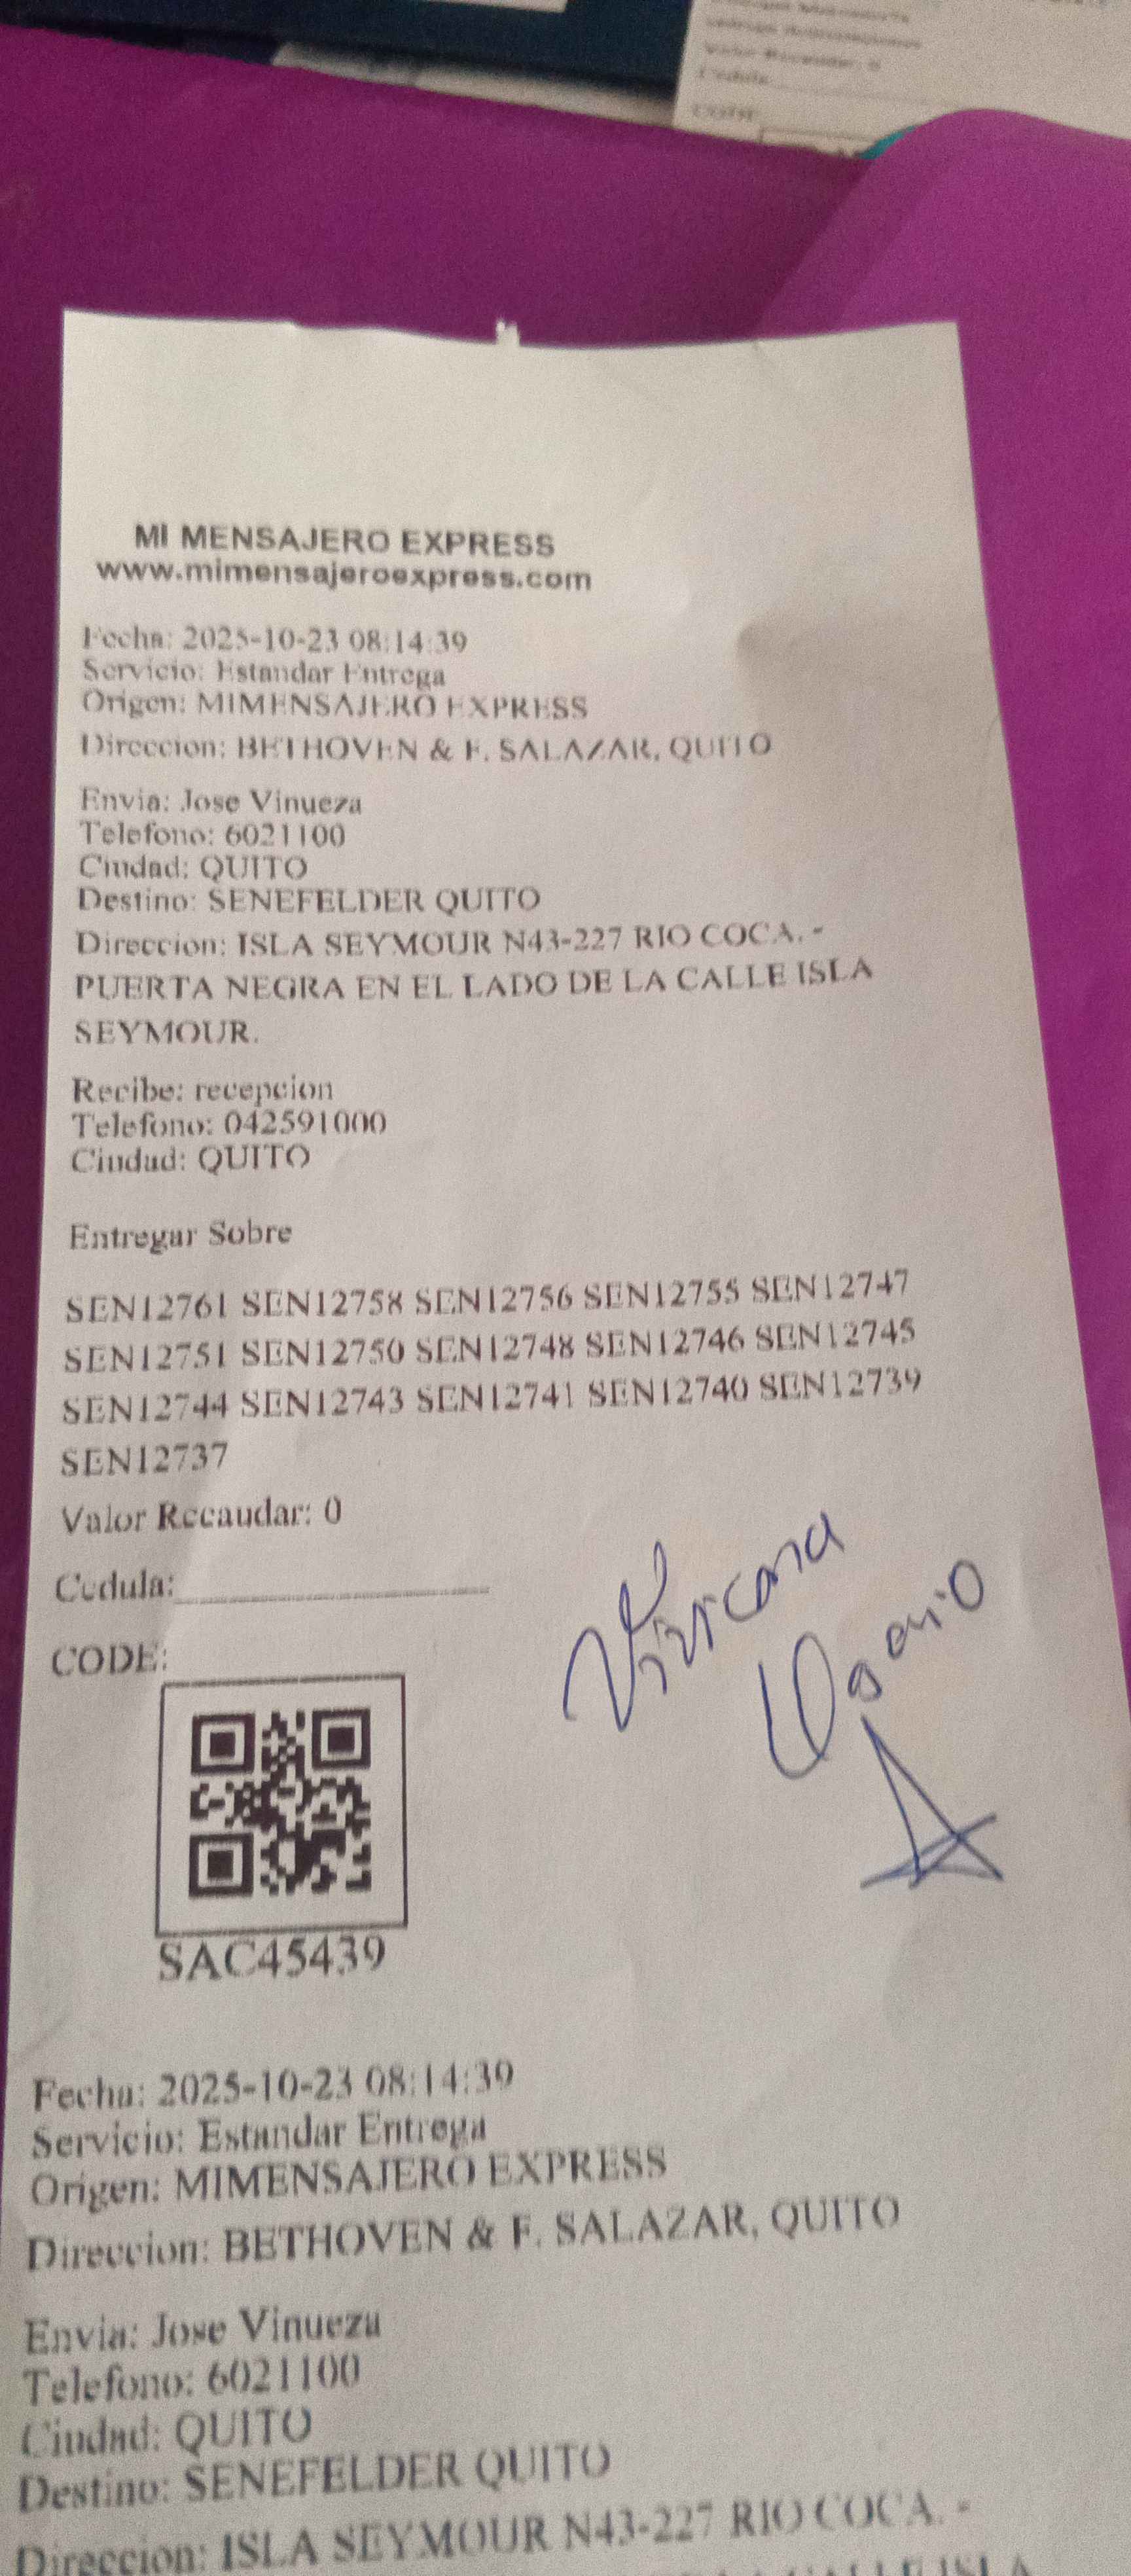 Valor Recaudar: 0
CODE:
MI MENSAJERO EXPRESS
www.mimensajeroexpress.com
Fecha: 2025-10-23 08:14:39
Servicio: Estandar Entrega
Origen: MIMENSAJERO EXPRESS
Direccion: BETHOVEN & F. SALAZAR, QUITO
Envia: Jose Vinueza
Telefono: 6021100
Ciudad: QUITO
Destino: SENEFELDER QUITO
Direccion: ISLA SEYMOUR N43-227 RIO COCA. -
PUERTA NEGRA EN EL LADO DE LA CALLE ISLA
SEYMOUR.
Recibe: recepcion
Telefono: 042591000
Ciudad: QUITO
Entregar Sobre
SEN12761 SEN12758 SEN12756 SEN12755 SEN12747
SEN12751 SEN12750 SEN12748 SEN12746 SEN12745
SEN12744 SEN12743 SEN12741 SEN12740 SEN12739
SEN12737
Valor Recaudar: 0
Cedula:
CODE:
Viviana
SAC45439
Fecha: 2025-10-23 08:14:39
Servicio: Estandar Entrega
Origen: MIMENSAJERO EXPRESS
Direccion: BETHOVEN & F. SALAZAR, QUITO
Envia: Jose Vinueza
Telefono: 6021100
Ciudad: QUITO
Destino: SENEFELDER QUITO
Direccion: ISLA SEYMOUR N43-227 RIO COCA. -